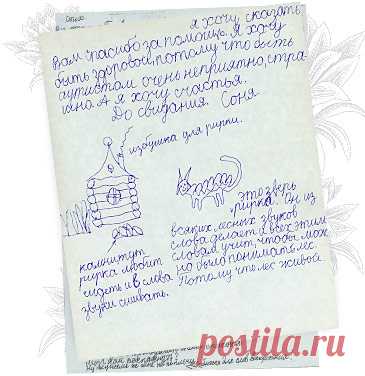 я хочу сказать
Вам спасибо за помощь. Я хочу
быть здоровой, потому что быть
аутистом очень неприятно, стра-
шно. А я хочу счастья.
До свидания. Соня
избушка для рирки.
это зверь
рирка. Он из
всяких лесных звуков
слова делает и всех этим
словам учит, чтобы мож
но было понимать лес.
Потому что лес живой
камнитут
рирка любит
сидеть и в слова
звуки сшивать.
postila.ru